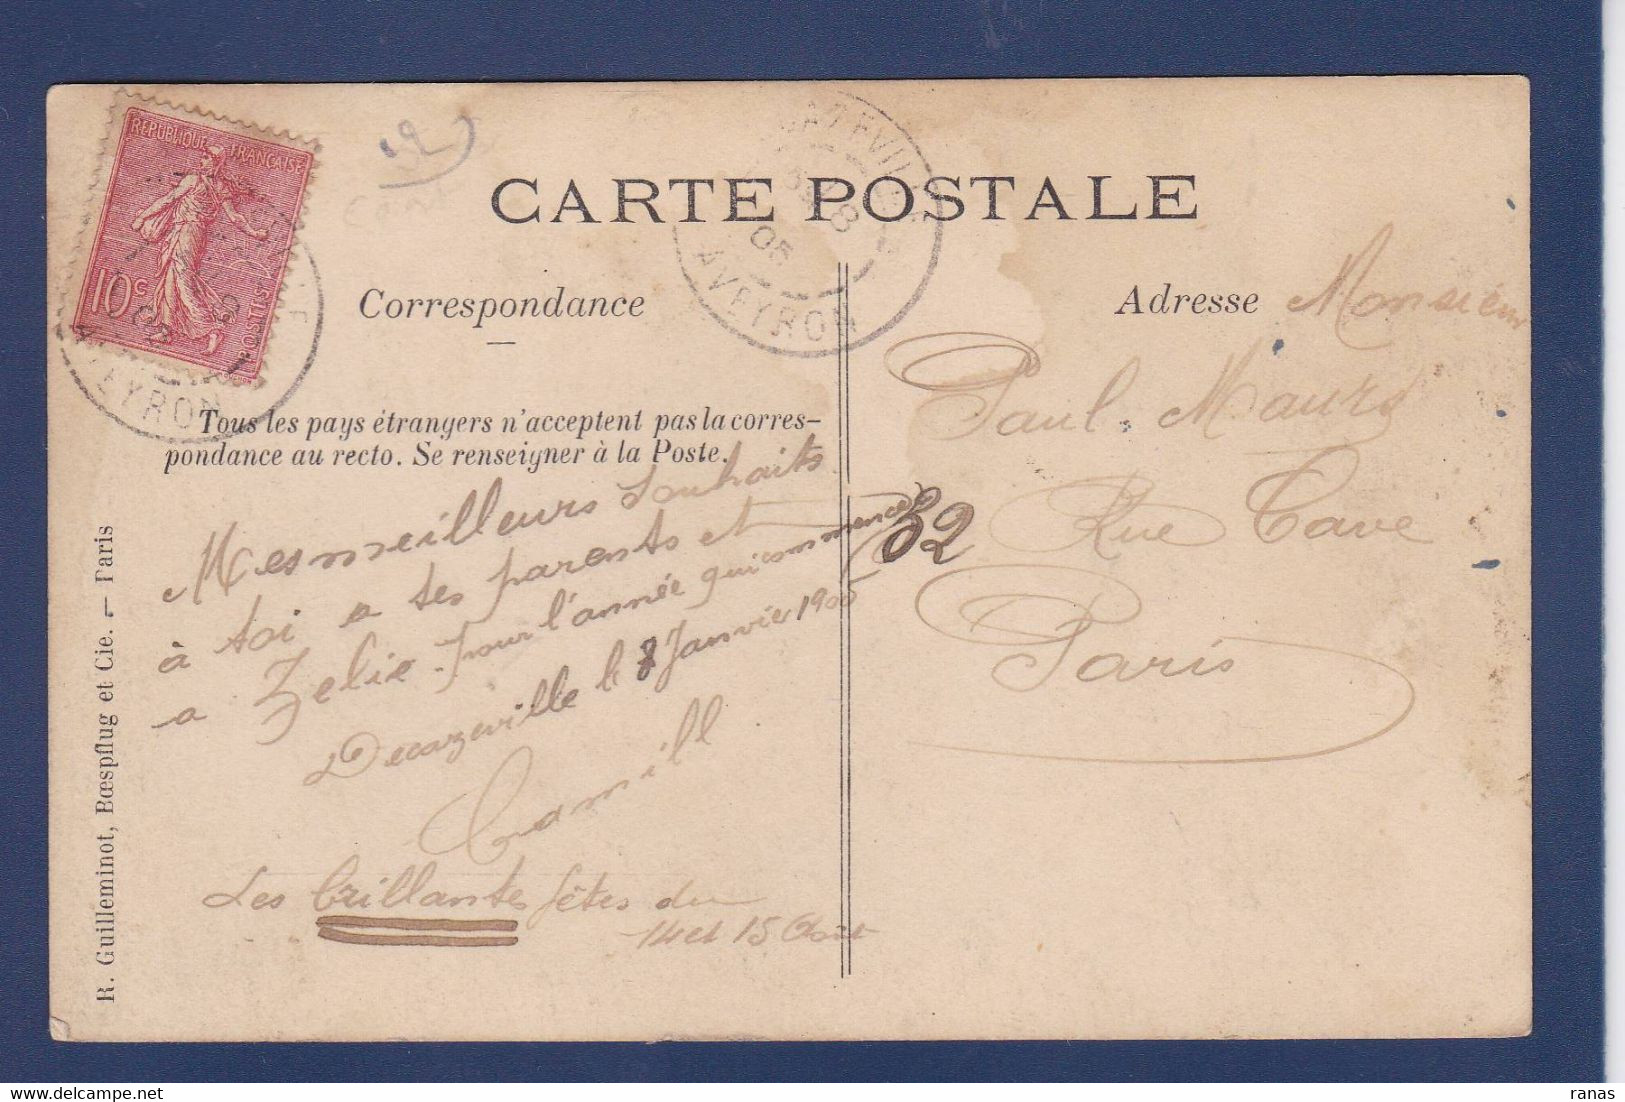 RÉPUBLIQUE FRANÇAISE
10c
POSTES
AVEYRON
AVEYRON
05
CARTE POSTALE
Correspondance
Adresse Monsieur
Tous les pays étrangers n'acceptent pas la corres-
pondance au recto. Se renseigner à la Poste.
Mes meilleurs souhaits
à toi a tes parents et
a Zelie pour l'année qui commence
Decazeville le 8 Janvier 1905
Camill
Les brillantes fêtes du
14 et 15 Août
Paul Maurs
32 Rue Cave
Paris
R. Guilleminot, Bœspflug et Cie. — Paris
ranas